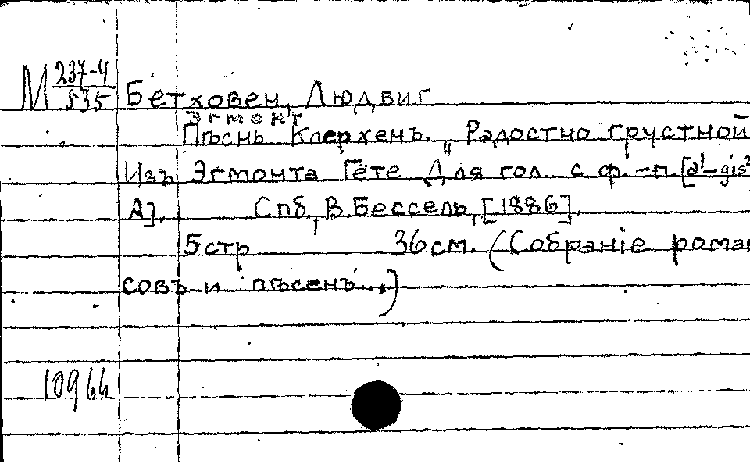 М 237-4/535
Бетховен, Людвиг
Эгмонт
Пѣснь Клерхенъ. „Радостно грустной
Изъ Эгмонта Гёте Для гол. с ф.-п. [a¹-gis²
A]. Спб, В. Бессель, [1886].
5 стр 36 см. (Собраніе роман
совъ и пѣсенъ...)
10964